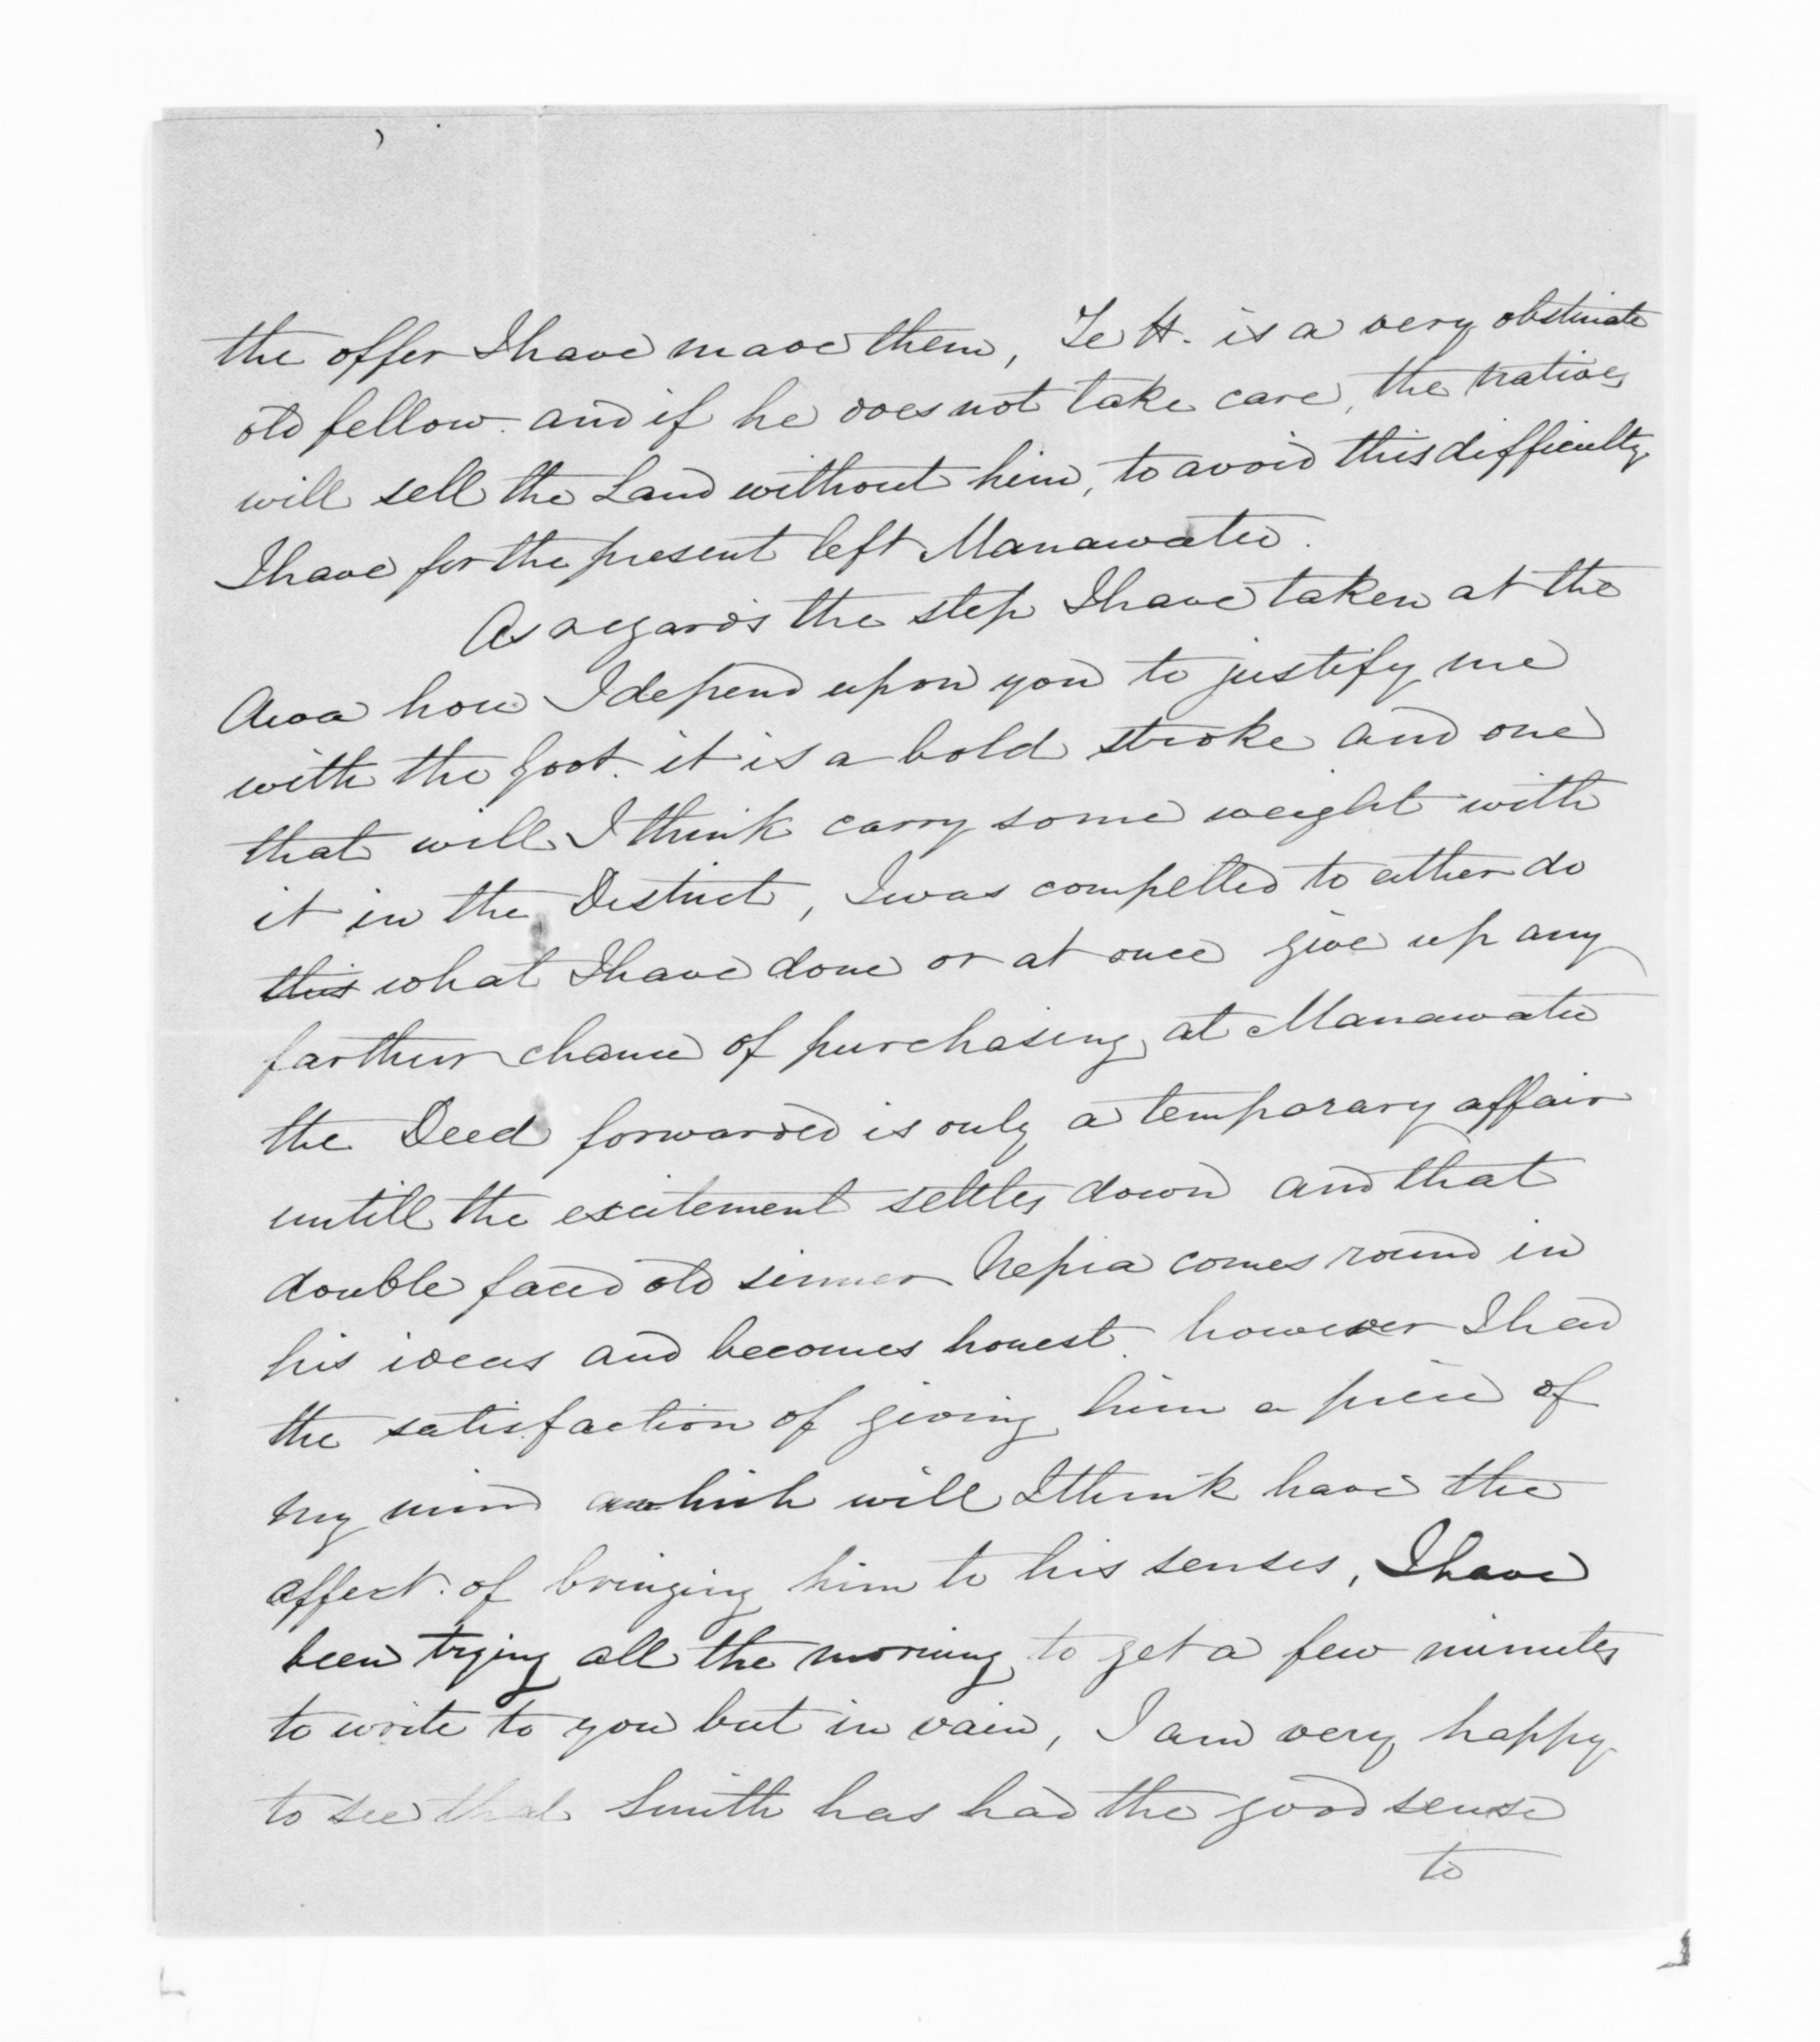 the offer I have made them, Te H. is a very obstinate
old fellow and if he does not take care, the natives
will sell the Land without him, to avoid this difficulty
I have for the present left Manawatu.
As regards the step I have taken at the
Awa hou I depend upon you to justify me
with the Govt. it is a bold stroke and one
that will I think carry some weight with
it in the District, I was compelled to either do
this what I have done or at once give up any
farther chance of purchasing at Manawatu
the Deed forwarded is only a temporary affair
untill the excitement settles down and that
double faced old sinner Nepia comes round in
his ideas and becomes honest. however I had
the satisfaction of giving him a piece of
my mind which will I think have the
affect of bringing him to his senses, I have
been trying all the morning to get a few minutes
to write to you but in vain, I am very happy
to see that Smith has had the good sense
to